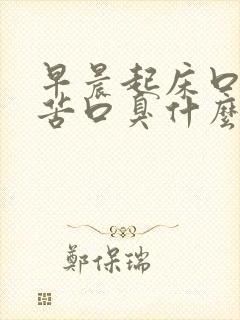 早晨起床口
苦口臭什麼
鄭保瑞